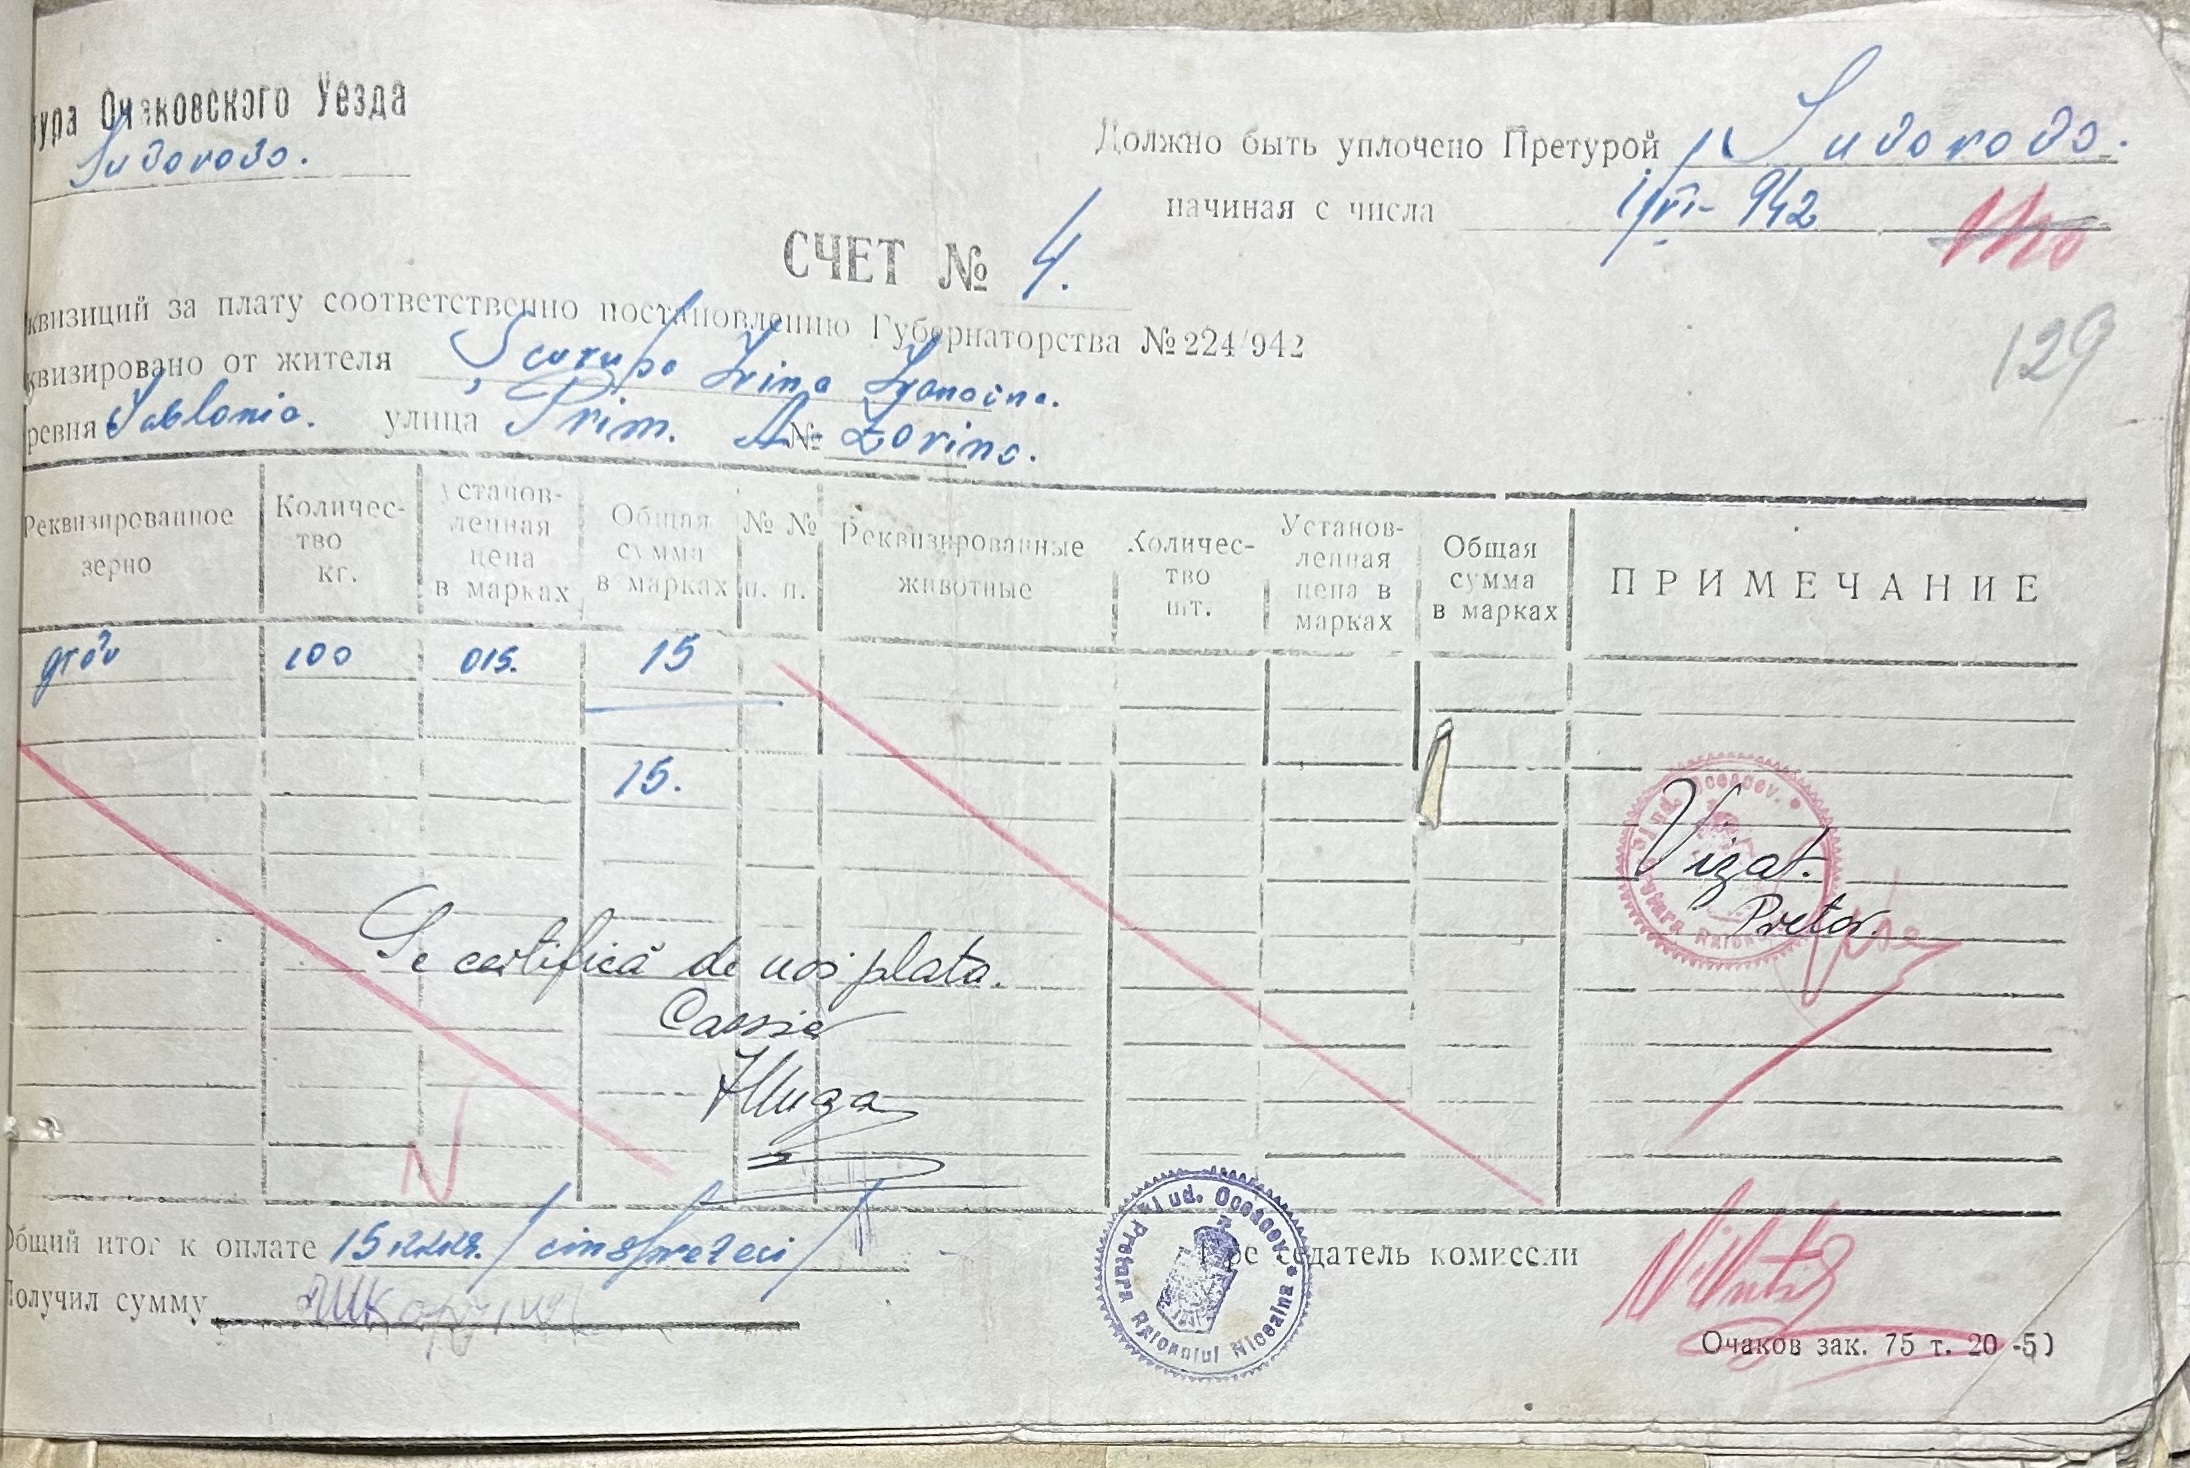 тура Очаковского Уезда
Suvorovo.
Должно быть уплочено Претурой Suvorovo.
начиная с числа 1/VI-942
СЧЕТ № 4.
129
квизиций за плату соответственно постановлению Губернаторства № 224/942
квизировано от жителя Irina
ревня улица Prim. №
Реквизированное зерно
Количество кг.
Установленная цена в марках
Общая сумма в марках
№ № п. п.
Реквизированные животные
Количество шт.
Установленная цена в марках
Общая сумма в марках
ПРИМЕЧАНИЕ
grâu 100 015. 15
15.
Vizat.
Pretor.
Se certifică de noi plata.
Casier
Общий итог к оплате 15 /cinsprezeci/
Получил сумму
Председатель комиссии
Pretura Raionului Nicealna Jud. Oceacov.
Очаков зак. 75 т. 20-5)